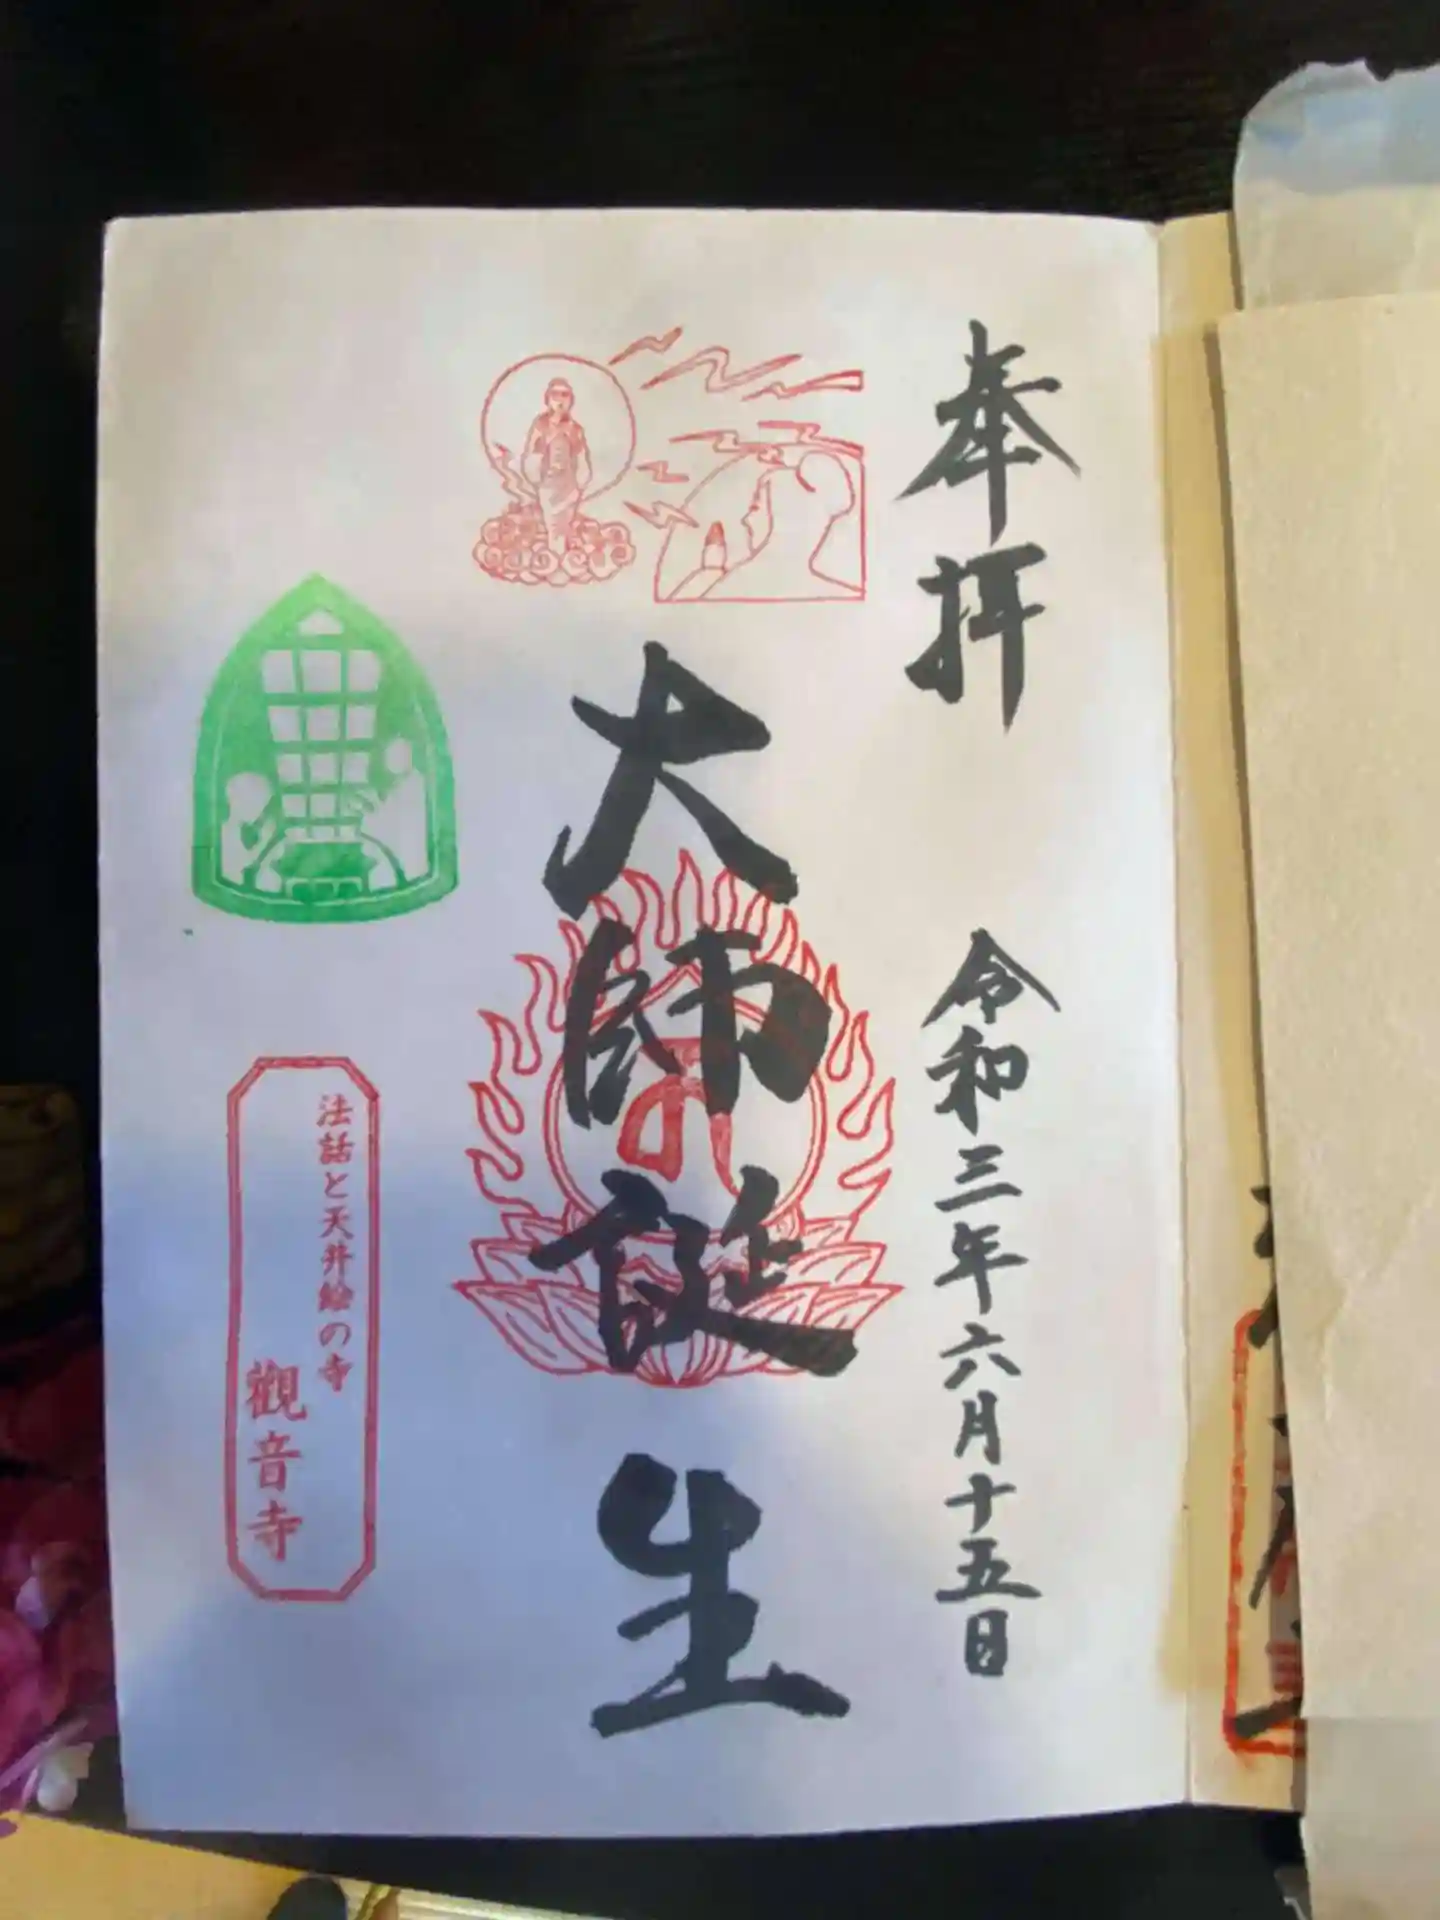 奉拝
令和三年六月十五日
大師誕生
法話と天井絵の寺
觀音寺